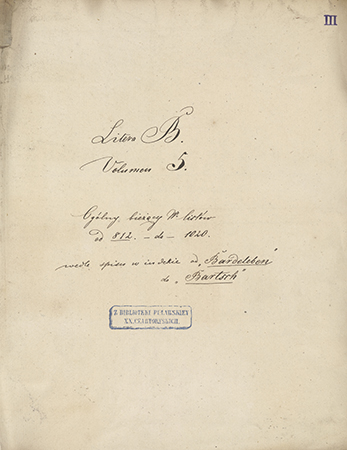 III
Litera B.
Volumen 5.
Ogólny bieżący Nr. listów
od 812. – do – 1040.
wedle spisu w indeksie od „Bardeleben"
do „Bartsch"
Z BIBLIOTEKI PUŁAWSKIEJ
XX. CZARTORYSKICH.